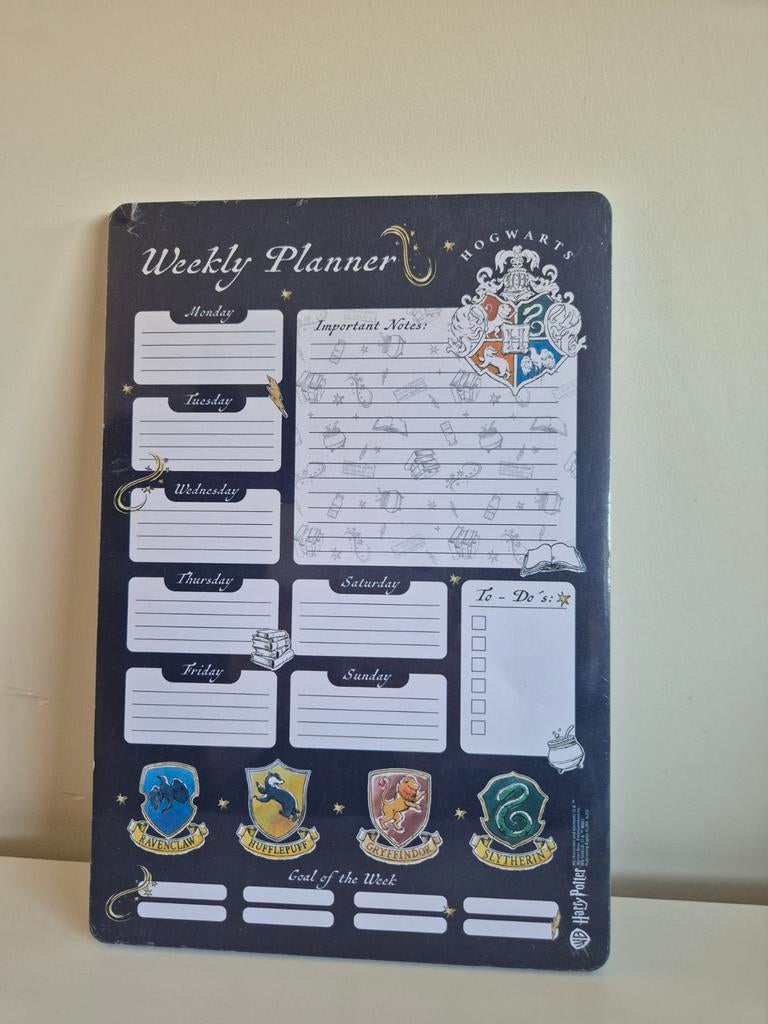 Weekly Planner
HOGWARTS
Monday
Important Notes:
H
Tuesday
Wednesday
Thursday
Saturday
To - Do's:
Friday
Sunday
RAVENCLAW
HUFFLEPUFF
GRYFFINDOR
SLYTHERIN
Goal of the Week
WB
Harry Potter